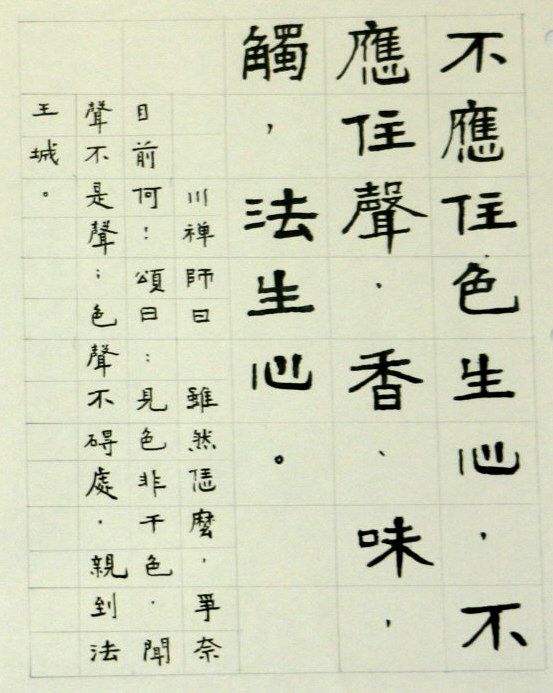 不應住色生心,不
應住聲、香、味,
觸,法生心。
川禅師曰 雖然恁麼,爭奈
目前何!頌曰:見色非干色.聞
聲不是聲;色聲不碍處.親到法
王城。